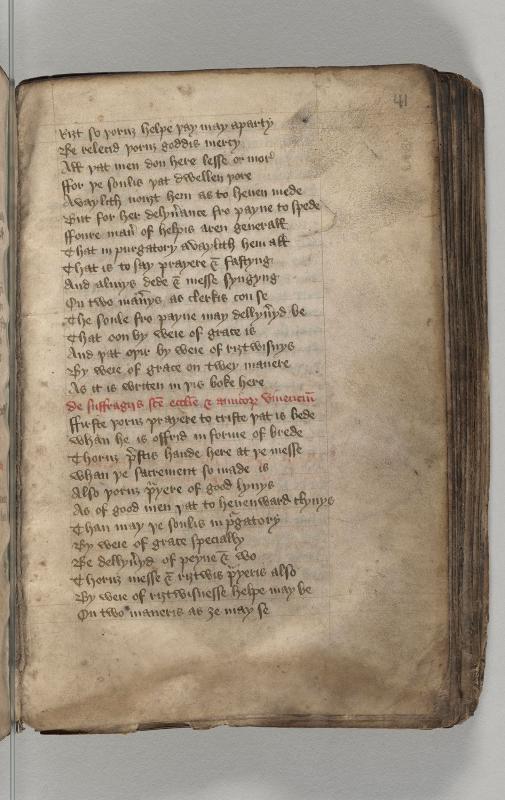 41
Riȝt so þoruȝ helpe þay may aparty
Be relecid þoruȝ goddis mercy
Aƚƚ þat men don here lesse or mor
ffor þe soulis þat dwellen þore
Awaylith nouȝt hem as to heuen mede
But for her delyu̅ance fro payne to spede
ffoure man̅ of helpis aren generaƚƚ
That in purgatory awaylith hem aƚƚ
That is to say prayere & fastyng
And almys dede & messe syngyng
On two man̅ys as clerkis con se
The soule fro payne may dellyu̅yd be
That oon by weie of grace is
And þat oþir by weie of riȝtwisnys
By weie of grace on twey manere
As it is writen in þis boke here
de suffragijs sc̅e eccl̅ie & amicoꝝ viuenciu̅
ffirste þoruȝ prayere to criste þat is bede
Whan he is offrid in forme of brede
Thoruȝ p̅stis hande here at þe messe
Whan þe sacrement so made is
Also þoruȝ p̅yere of good lyuys
As of good men þat to heuenward clyuys
Than may þe soulis in p̅gatory
By weie of grace specially
Be dellyu̅yd of peyne & wo
Thoruȝ messe & riȝtwis p̅yeris also
By weie of riȝtwisnesse helpe may be
On two maneris as ȝe may se